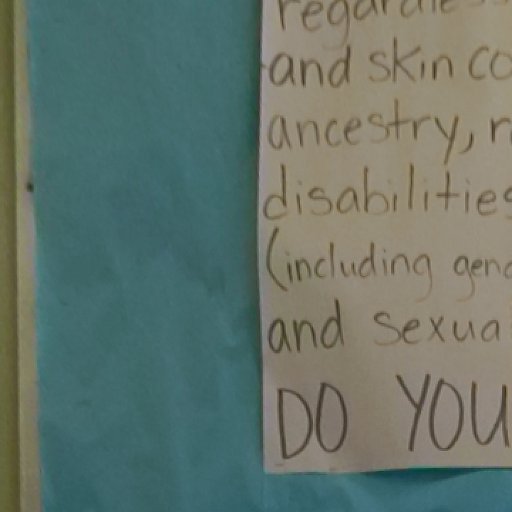 regardless
and skin co
ancestry, r
disabilities
(including gend
and sexua
DO YOU